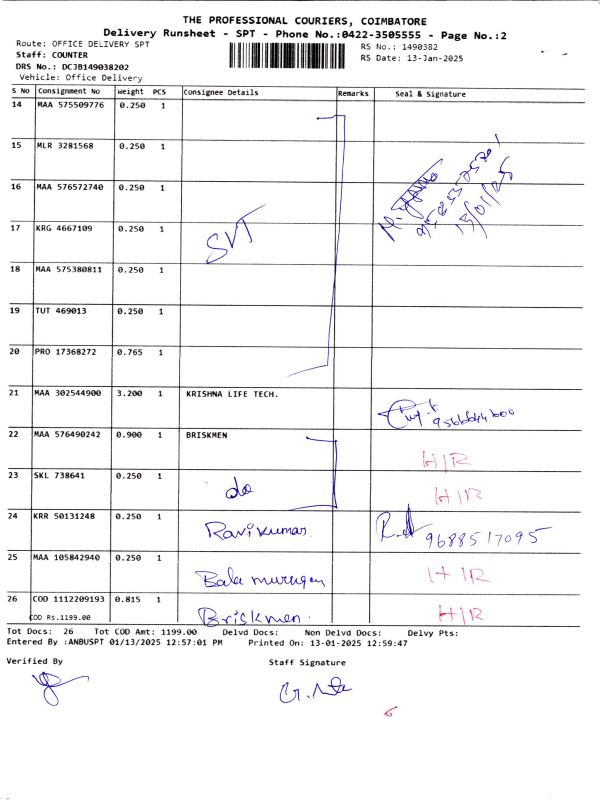 THE PROFESSIONAL COURIERS, COIMBATORE
Delivery Runsheet - SPT - Phone No.:0422-3505555 - Page No.:2
Route: OFFICE DELIVERY SPT
RS No.: 1490382
Staff: COUNTER
RS Date: 13-Jan-2025
DRS No.: DCJB149038202
Vehicle: Office Delivery
S No Consignment No Weight PCS Consignee Details Remarks Seal & Signature
14 MAA 575509776 0.250 1
15 MLR 3281568 0.250 1
16 MAA 576572740 0.250 1
13/01/25
17 KRG 4667109 0.250 1 SVT
18 MAA 575380811 0.250 1
19 TUT 469013 0.250 1
20 PRO 17368272 0.765 1
21 MAA 302544900 3.200 1 KRISHNA LIFE TECH.
22 MAA 576490242 0.900 1 BRISKMEN H/R
23 SKL 738641 0.250 1 do H/R
24 KRR 50131248 0.250 1 Ravikumar. 9688517095
25 MAA 105842940 0.250 1 Bala murugan H/R
26 COD 1112209193 0.815 1 Briskmen. H/R
COD Rs.1199.00
Tot Docs: 26 Tot COD Amt: 1199.00 Delvd Docs: Non Delvd Docs: Delvy Pts:
Entered By :ANBUSPT 01/13/2025 12:57:01 PM Printed On: 13-01-2025 12:59:47
Verified By Staff Signature